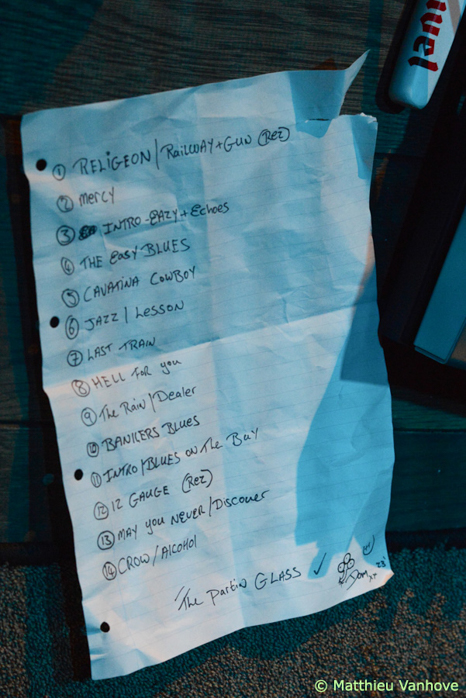 uel
① RELIGEON / RAILWAY + GUN (REZ)
② MERCY
③ INTRO - EAZY + Echoes
④ THE EASY BLUES
⑤ CAVATINA COWBOY
⑥ JAZZ / LESSON
⑦ LAST TRAIN
⑧ HELL FOR YOU
⑨ The Rain / Dealer
⑩ BANKERS BLUES
⑪ INTRO / BLUES ON The BAY
⑫ 12 GAUGE (REZ)
⑬ MAY YOU NEVER / DISCOVER
⑭ CROW / Alcohol
"The Partin GLASS ✓
© Matthieu Vanhove